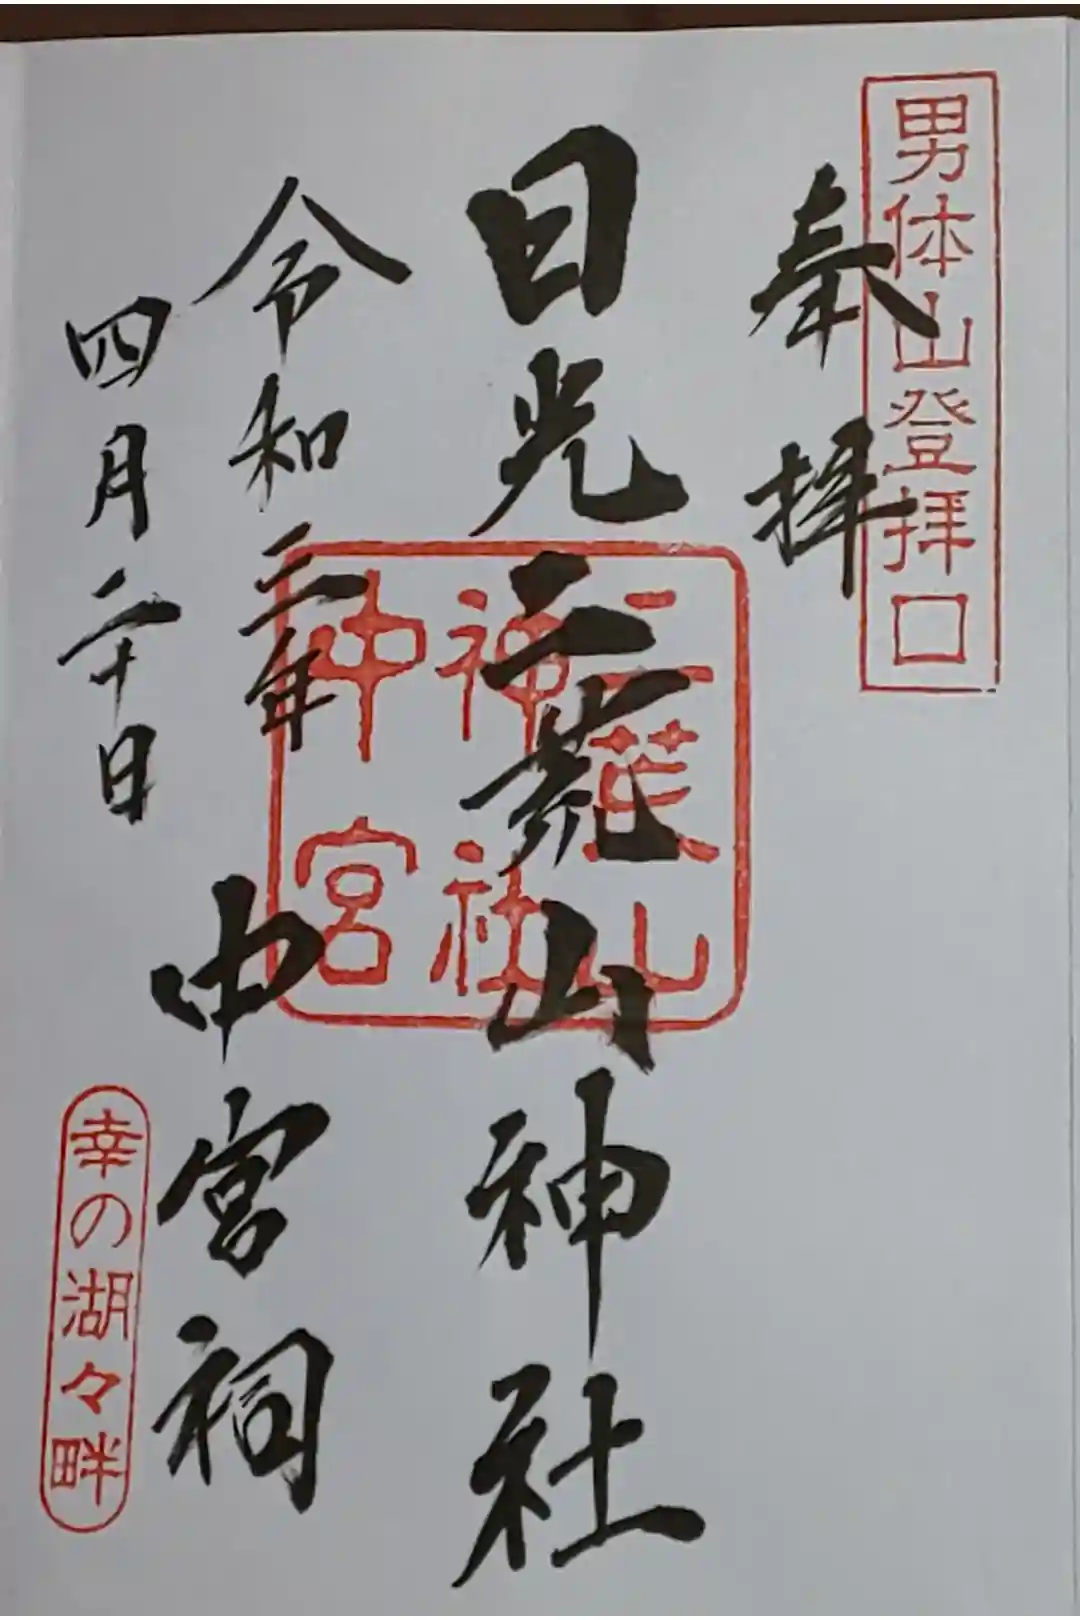 男体山登拝口
奉拝
日光二荒山神社
二荒山
神社
中宮
令和二年
中宮祠
四月二十日
幸の湖々畔